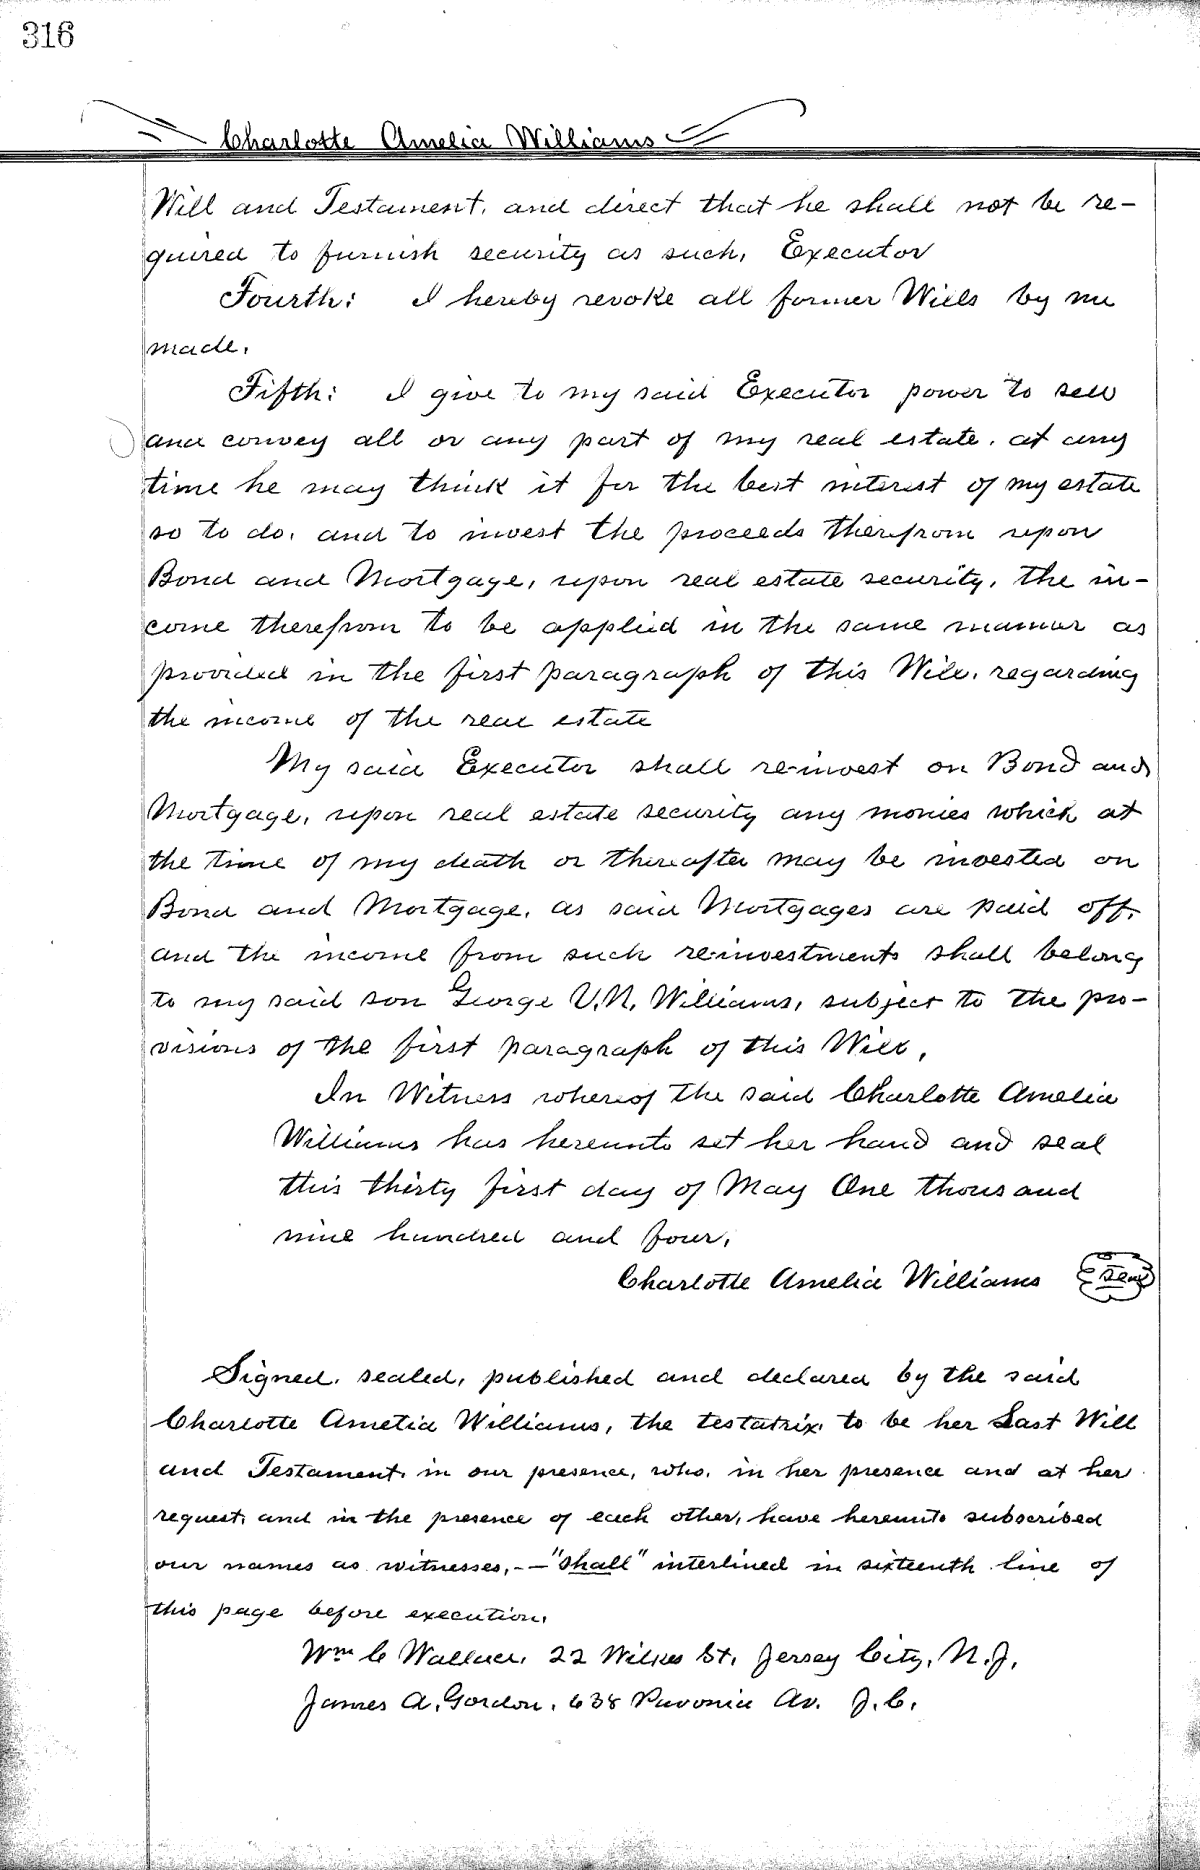 316
Charlotte Amelia Williams
Will and Testament, and direct that he shall not be re-
quired to furnish security as such, Executor
Fourth: I hereby revoke all former Wills by me
made.
Fifth: I give to my said Executor power to sell
and convey all or any part of my real estate, at any
time he may think it for the best interest of my estate
so to do, and to invest the proceeds therefrom upon
Bond and Mortgage, upon real estate security, the in-
come therefrom to be applied in the same manner as
provided in the first paragraph of this Will, regarding
the income of the real estate
My said Executor shall re-invest on Bond and
Mortgage, upon real estate security any monies which at
the time of my death or thereafter may be invested on
Bond and Mortgage, as said Mortgages are paid off,
and the income from such re-investments shall belong
to my said son George V.N. Williams, subject to the pro-
visions of the first paragraph of this Will,
In Witness whereof the said Charlotte Amelia
Williams has hereunto set her hand and seal
this thirty first day of May One thousand
nine hundred and four.
Charlotte Amelia Williams Seal
Signed, sealed, published and declared by the said
Charlotte Amelia Williams, the testatrix, to be her Last Will
and Testament, in our presence, who, in her presence and at her
request, and in the presence of each other, have hereunto subscribed
our names as witnesses, - - "shall" interlined in sixteenth line of
this page before execution.
Wm C Wallace, 22 Wilkes St, Jersey City, N.J.
James A. Gordon, 638 Pavonia Av. J.C.